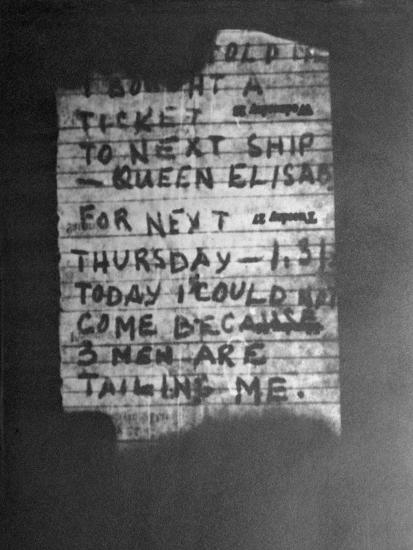 TOLD I
I BOUGHT A
TICKET
Wednesday 28
TO NEXT SHIP
— QUEEN ELISAB
FOR NEXT
Tuesday 27
THURSDAY — 1.31
TODAY I COULD
COME BECAUSE
3 MEN ARE
TAILING ME.